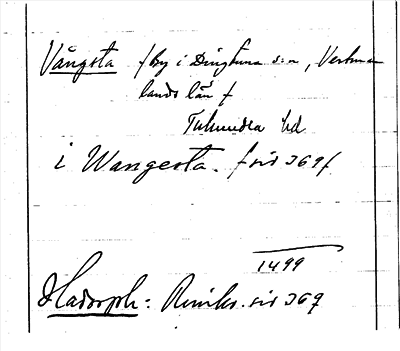 Vångsta /by i Dingtuna s:n, Västman
lands län/
Tuhundra hd
i Wangesta. /sid 369/
1499
Hadorph: Rimkr. sid 369